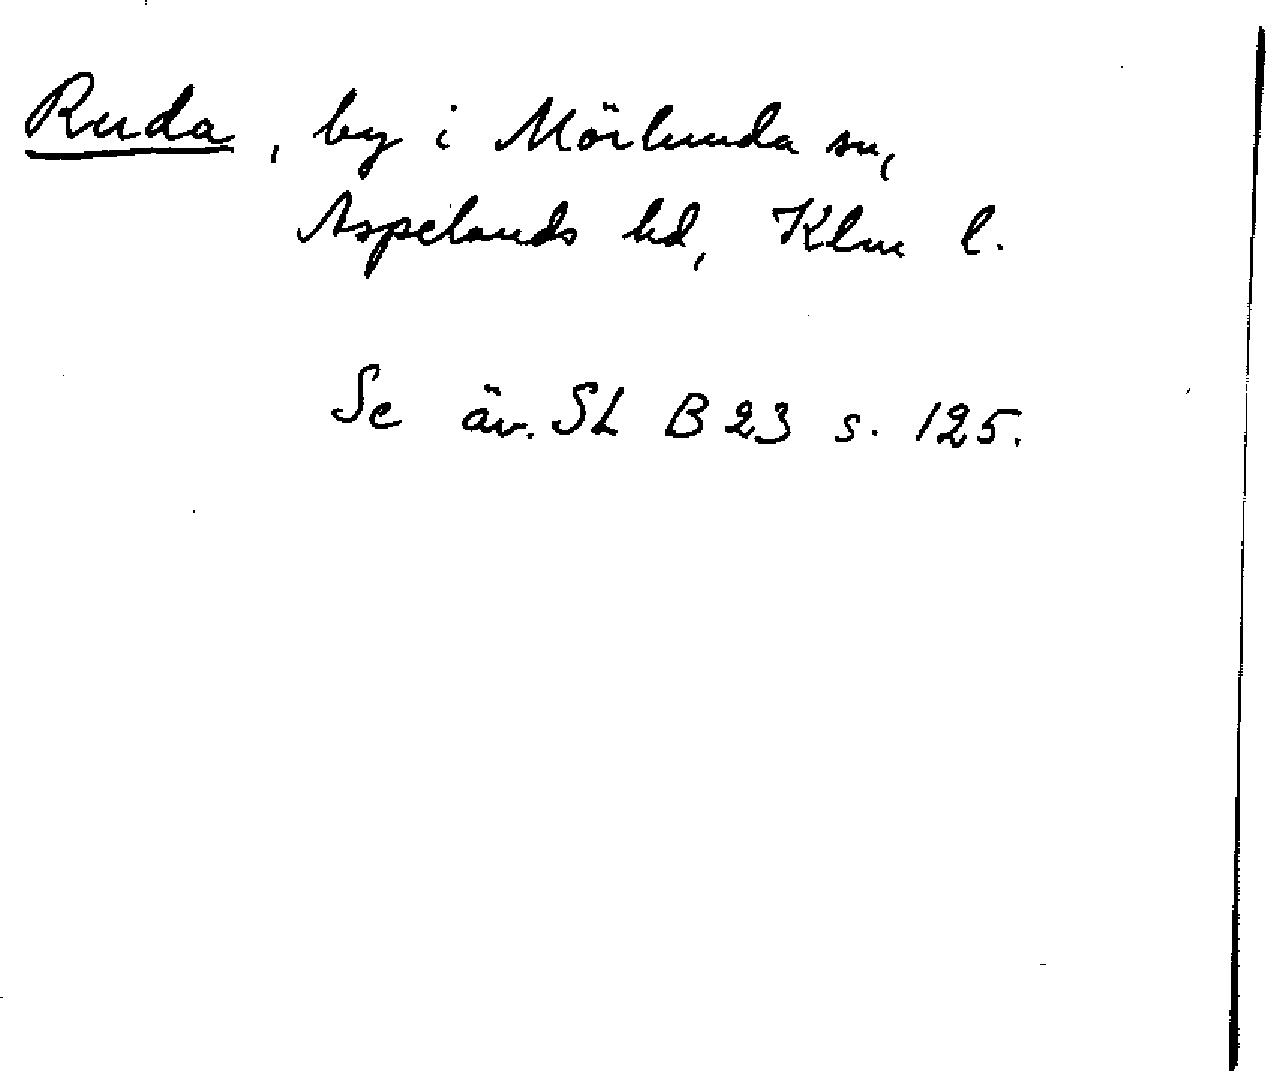 Ruda, by i Mörlunda sn,
Aspelands hd, Klm l.
Se äv. SL B 23 s. 125.